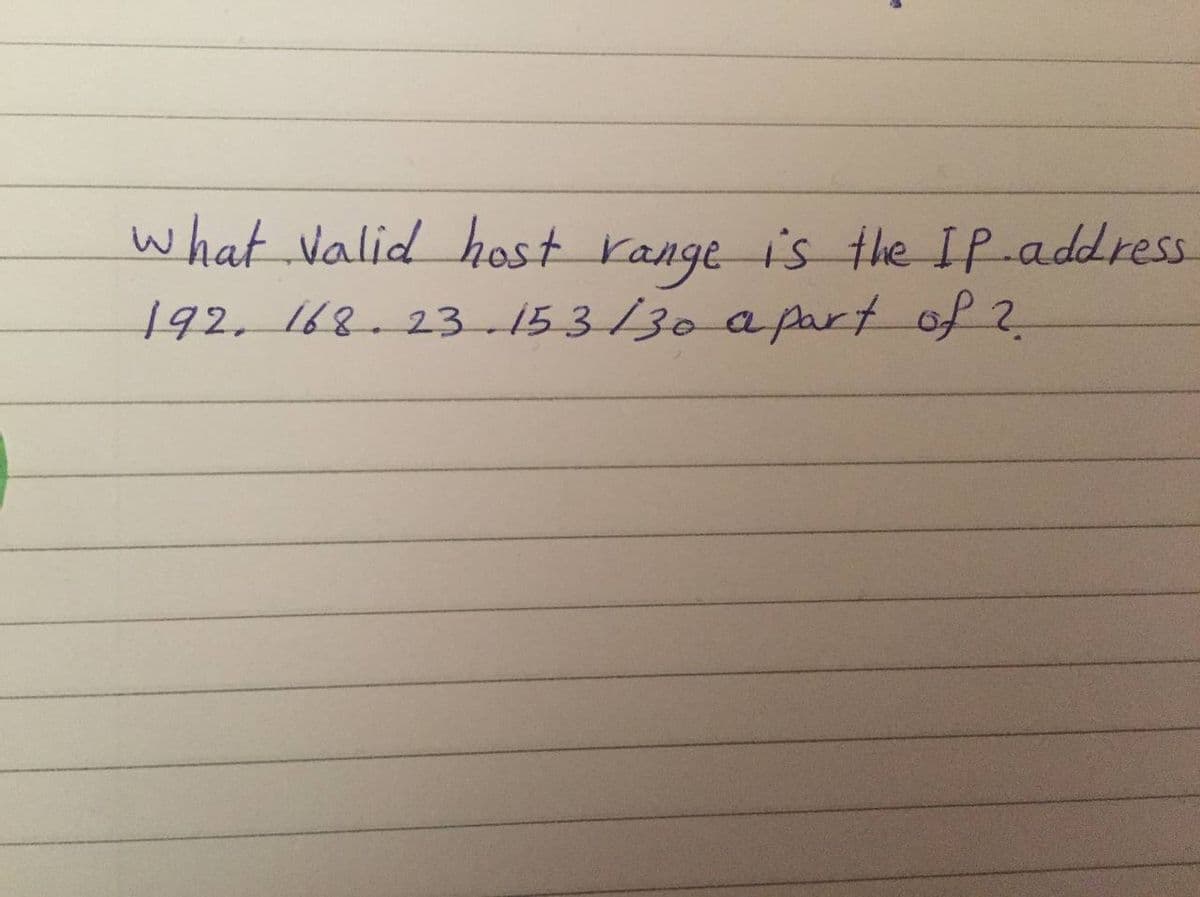 what valid host range is the IP address
192. 168. 23.153/30 a part of?